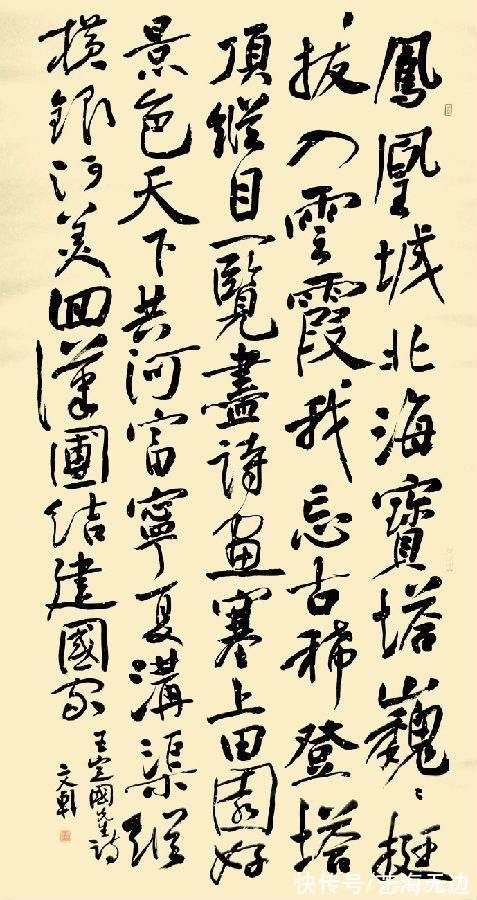 鳳凰城北海寶塔巍々挺
拔入雲霞我忘古稀登塔
頂縱目一覽盡詩畫塞上田園好
景色天下共河富寧夏溝渠縱
橫銀河美回漢團结建國家
王定國先生詩
文軒
快传号/艺海无边